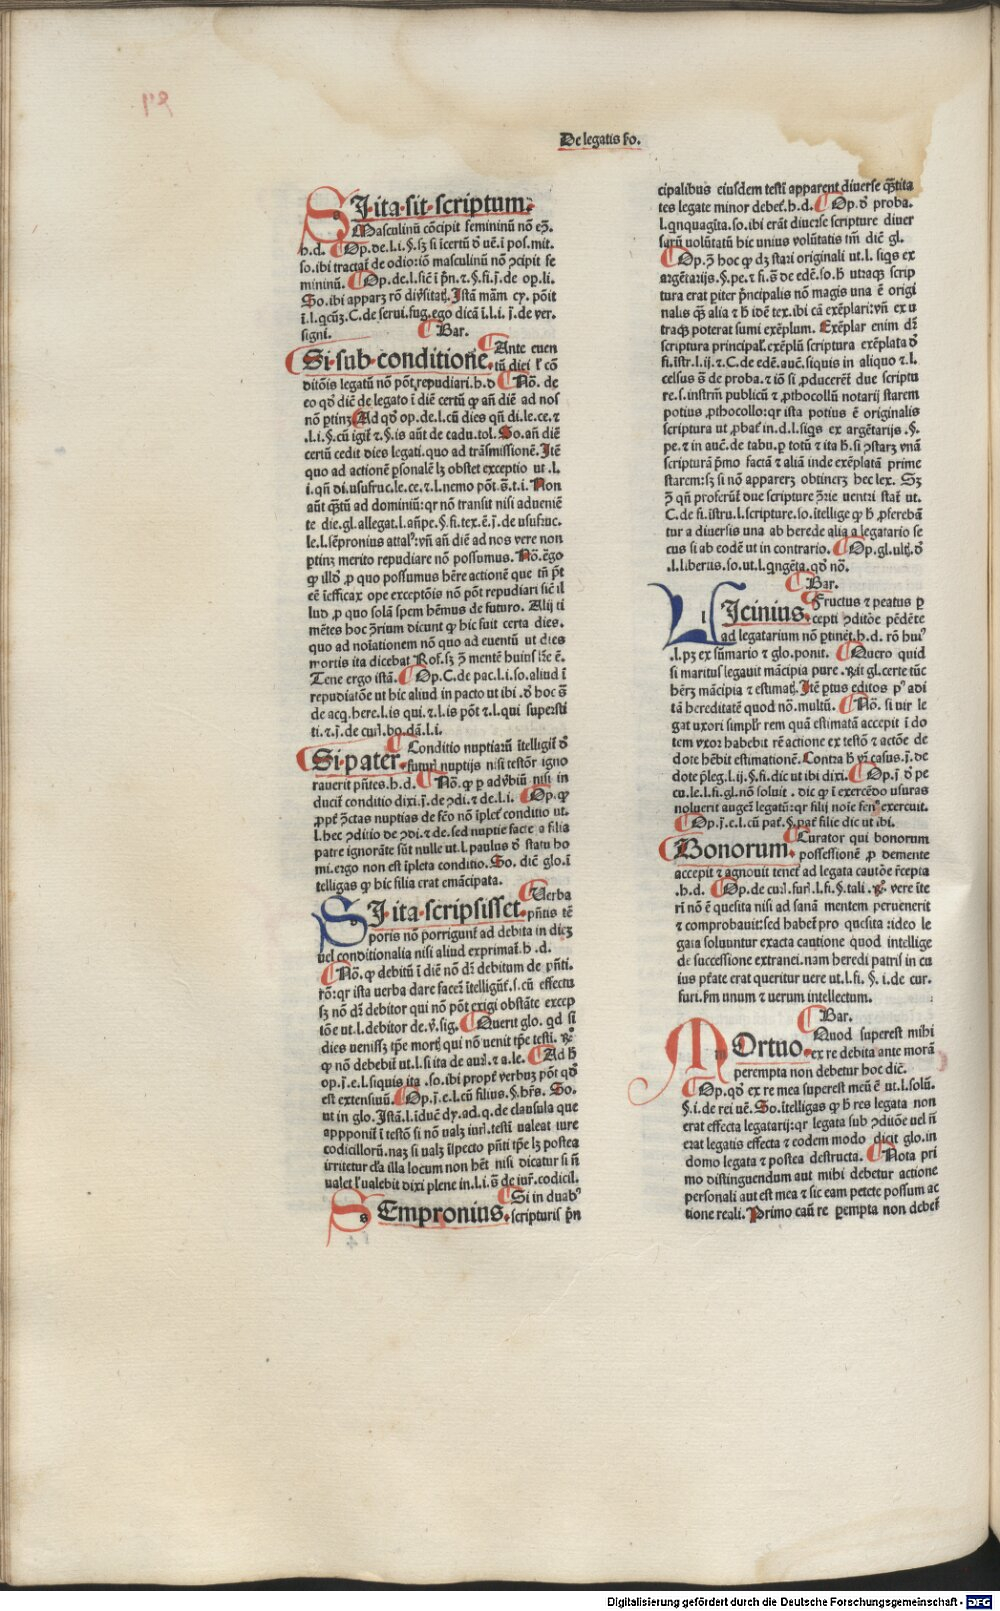 De legatis ẜo.
SI·ita·sit·scriptum.
Masculinū cōcipit femininū nō eꝫ.
h.d. Op.de.l.i.§.sꝫ si īcertū đ uē.i pos.mit.
so.ibi tractat̄ de odio:iō masculinū nō ↄcipit fe
mininū. Op.de.l.sic̄ ī p̄n.⁊.§.fi.j̄.de op.li.
So.ibi apparꝫ rō
signi. Bar.
Si·sub·conditione. Ante euen
tū diei ł cō
ditōis legatū nō pōt repudiari.h.d Nō. de
eo qđ diē de legato ī diē certū ꝙ añ diē ad nos
nō ptinꝫ Ad qđ op.de.l.cū dies qñ di.le.ce.⁊
certū cedit dies legati.quo ad trāsmissionē. Itē
quo ad actionē ꝑsonalē lꝫ obstet exceptio ut .l.
i.qñ di.usufruc.le.ce.⁊.l.nemo pōt.s̄.t.i. Non
aūt qꝫtū ad dominiū:qr nō transit nisi adueniē
te die.gl.allegat.l.
ptinꝫ merito repudiare nō possumus. Nō.ēgo
ꝙ illđ ꝓ quo possumus hēre actionē que tñ pt̄
eē īefficax ope exceptōis nō pōt repudiari sic̄ il
lud ꝓ quo solā spem hēmus de futuro. Alij ti
mētes hoc ↄ̄rium dicunt ꝙ hic fuit certa dies.
quo ad noīationem nō quo ad euentū ut dies
mortis ita dicebat Rof.sꝫ ↄ̄ mentē huius lr̄e ē.
Tene ergo istā. Op.C.de pac.l.i.so.aliud ī
repudiatōe ut hic aliud in pacto ut ibi .đ hoc s̄
de acq.here.l.is qui.⁊.l.is pōt ⁊.l.qui supersti
ti.⁊.j̄.de cur̄.bo.dā.l.i.
Si·pater. Conditio nuptiarū ītelligit̄ đ
futur̄ nuptijs nisi testōr igno
rauerit pn̄tes.h.d. Nō.ꝙ ꝑ aduͤbiū nisi in
ducit̄ conditio dixi.j̄.de ↄdi.⁊ de.l.i. Op.ꝙ
ꝓpt̄ ↄ̄ctas nuptias de fc̄o nō īplet̄ conditio ut.
l.hec ↄditio de ↄdi.⁊ de.sed nuptie facte a filia
patre ignorāte sūt nulle ut.l.paulus đ statu ho
mi.ergo non est īpleta conditio. So. diē glo.ī
telligas ꝙ hic filia erat emācipata.
SI·ita·scripsisset. Uerba
pn̄tis tē
poris nō porrigunt̄ ad debita in diez
uel conditionalia nisi aliud exprimat̄.h .d.
Nō. ꝙ debitū ī diē nō dr̄ debitum de pn̄ti.
rō:qr ista uerba dare facer̄ ītelligūt̄.s.cū effectu
sꝫ nō dr̄ debitor qui nō pōt exigi obstāte excep
tōe ut.l.debitor de.v̄.sig. Querit glo. qd si
dies uenissꝫ tꝑe mort̄ qui nō uenit tꝑe testi. ℞
ꝙ nō debebit̄ ut.l.si ita de aur̄.⁊ a.le. Ad h̄
op.j̄.e.l.siquis ita .so.ibi propt̄ verbuꝫ pōt qđ
est extensiuū. Op.j̄.e.l.cū filius.§.hr̄s. So.
ut in glo. Istā.l.īduc̄ dy.ad.q.de clausula que
appponit̄ ī testō si nō ualꝫ iur̄.testi ualeat iure
codicillorū.naꝫ si ualꝫ īspecto pn̄ti tꝑe lꝫ postea
irritetur cla illa locum non hēt nisi dicatur si ñ
ualet ł ualebit dixi plene in.l.i.s̄ de iur̄.codicil.
SEmpronius. Si in duab⁹
scripturis p̄n
cipalibus eiusdem testi apparent diuerse qꝫtita
tes legate minor debet̄.h.d. Op.đ proba.
l.qnquagīta.so.ibi erāt diuerse scripture diuer
sarū uolūtatū hic unius volūtatis tm̄ diē gl.
Op.ↄ̄ hoc ꝙ dꝫ stari originali ut.l. siqs ex
argētarijs.§.pe.⁊ fi.s̄ de edē.so.h̄ utraqꝫ scrip
tura erat piter p̄ncipalis nō magis una ē origi
nalis qꝫ alia ⁊ h̄ idē tex.ibi cā exēplari:vñ ex u
traqꝫ poterat sumi exēplum. Exēplar enim dr̄
scriptura principal̄.exēplū scriptura exēplata đ
fi.īstr.l.ij.⁊.C.de edē.auc̄.siquis in aliquo ⁊.l.
celsus s̄ de proba.⁊ iō si ꝓducerēt̄ due scriptu
re.s.instrm̄ publicū ⁊ ꝓthocollū notarij starem
potius ꝓthocollo:qr ista potius ē originalis
scriptura ut ꝓbat̄ in.d.l.siqs ex argētarijs .§.
pe.⁊ in auc̄.de tabu.ꝑ totū ⁊ ita h̄.si ↄstarꝫ vnā
scripturā p̄mo factā ⁊ aliā inde exēplatā prime
starem:sꝫ si nō apparerꝫ obtinerꝫ hec lex. Sꝫ
ↄ̄ qñ proferūt̄ due scripture ↄ̄rie uentri stat̄ ut.
C.de fi.īstru.l.scripture.so.ītellige ꝙ h̄ ꝓferebā
tur a diuersis una ab herede alia a legatario se
cus si ab eodē ut in contrario. Op.gl.ult̄.đ
.l.libertus.so.ut.l.qngēta.qđ nō.
Bar.
LIcinius. Fructus ⁊ peatus ꝑ
cepti ↄditōe pēdēte
ad legatarium nō ptinēt.h.d. rō hui⁹
.l.pꝫ ex sūmario ⁊ glo.ponit. Quero quid
si maritus legauit mācipia pure .℞it gl.certe tūc
tā hereditatē quod nō.multū. Nō. si uir le
gat uxori simplr̄ rem quā estimatā accepit ī do
tem vxor habebit rē actione ex testō ⁊ actōe de
dote hēbit estimationē. Contra h̄ vr̄ casus.j̄.de
dote p̄leg.l.ij.§.fi.dic ut ibi dixi. Op.j̄ đ pe
cu.le.l.fi.gl.nō soluit . dic ꝙ ī exercēdo usuras
noluerit augeri legatū:qr filij noīe fen⁹ exercuit.
Op.j̄.e.l.cū pat̄.§.pat̄ filie dic ut ibi.
Bonorum. Curator qui bonorum
possessionē ꝓ demente
accepit ⁊ agnouit tenet̄ ad legata cautōe r̄cepta
.h.d. Op.de cur̄.fur̄.l.fi.§.tali .℞. vere īte
rī nō ē quesita nisi ad sanā mentem peruenerit
⁊ comprobauit:sed habet̄ pro quesita :ideo le
gata soluuntur exacta cautione quod intellige
de successione extranei.nam heredi patris in cu
ius pt̄ate erat queritur vere ut.l.fi. §. i.de cur.
furi.ẜm unum ⁊ uerum intellectum.
Bar.
MOrtuo. Quod superest mihi
ex re debita ante morā
perempta non debetur hoc dic̄.
Op.qđ ex re mea superest meū ē ut.l.solū.
§.i.de rei uē. So.ītelligas ꝙ h̄ res legata non
erat effecta legatarij:qr legata sub ↄdutōe uel ñ
erat legatis effecta ⁊ eodem modo dicit glo.in
domo legata ⁊ postea destructa. Nota pri
mo distinguendum aut mihi debetur actione
personali aut est mea ⁊ sic eam petete possum ac
tione reali. Primo casu re ꝑempta non debet̄
Digitalisierung gefördert durch die Deutsche Forschungsgemeinschaft - DFG